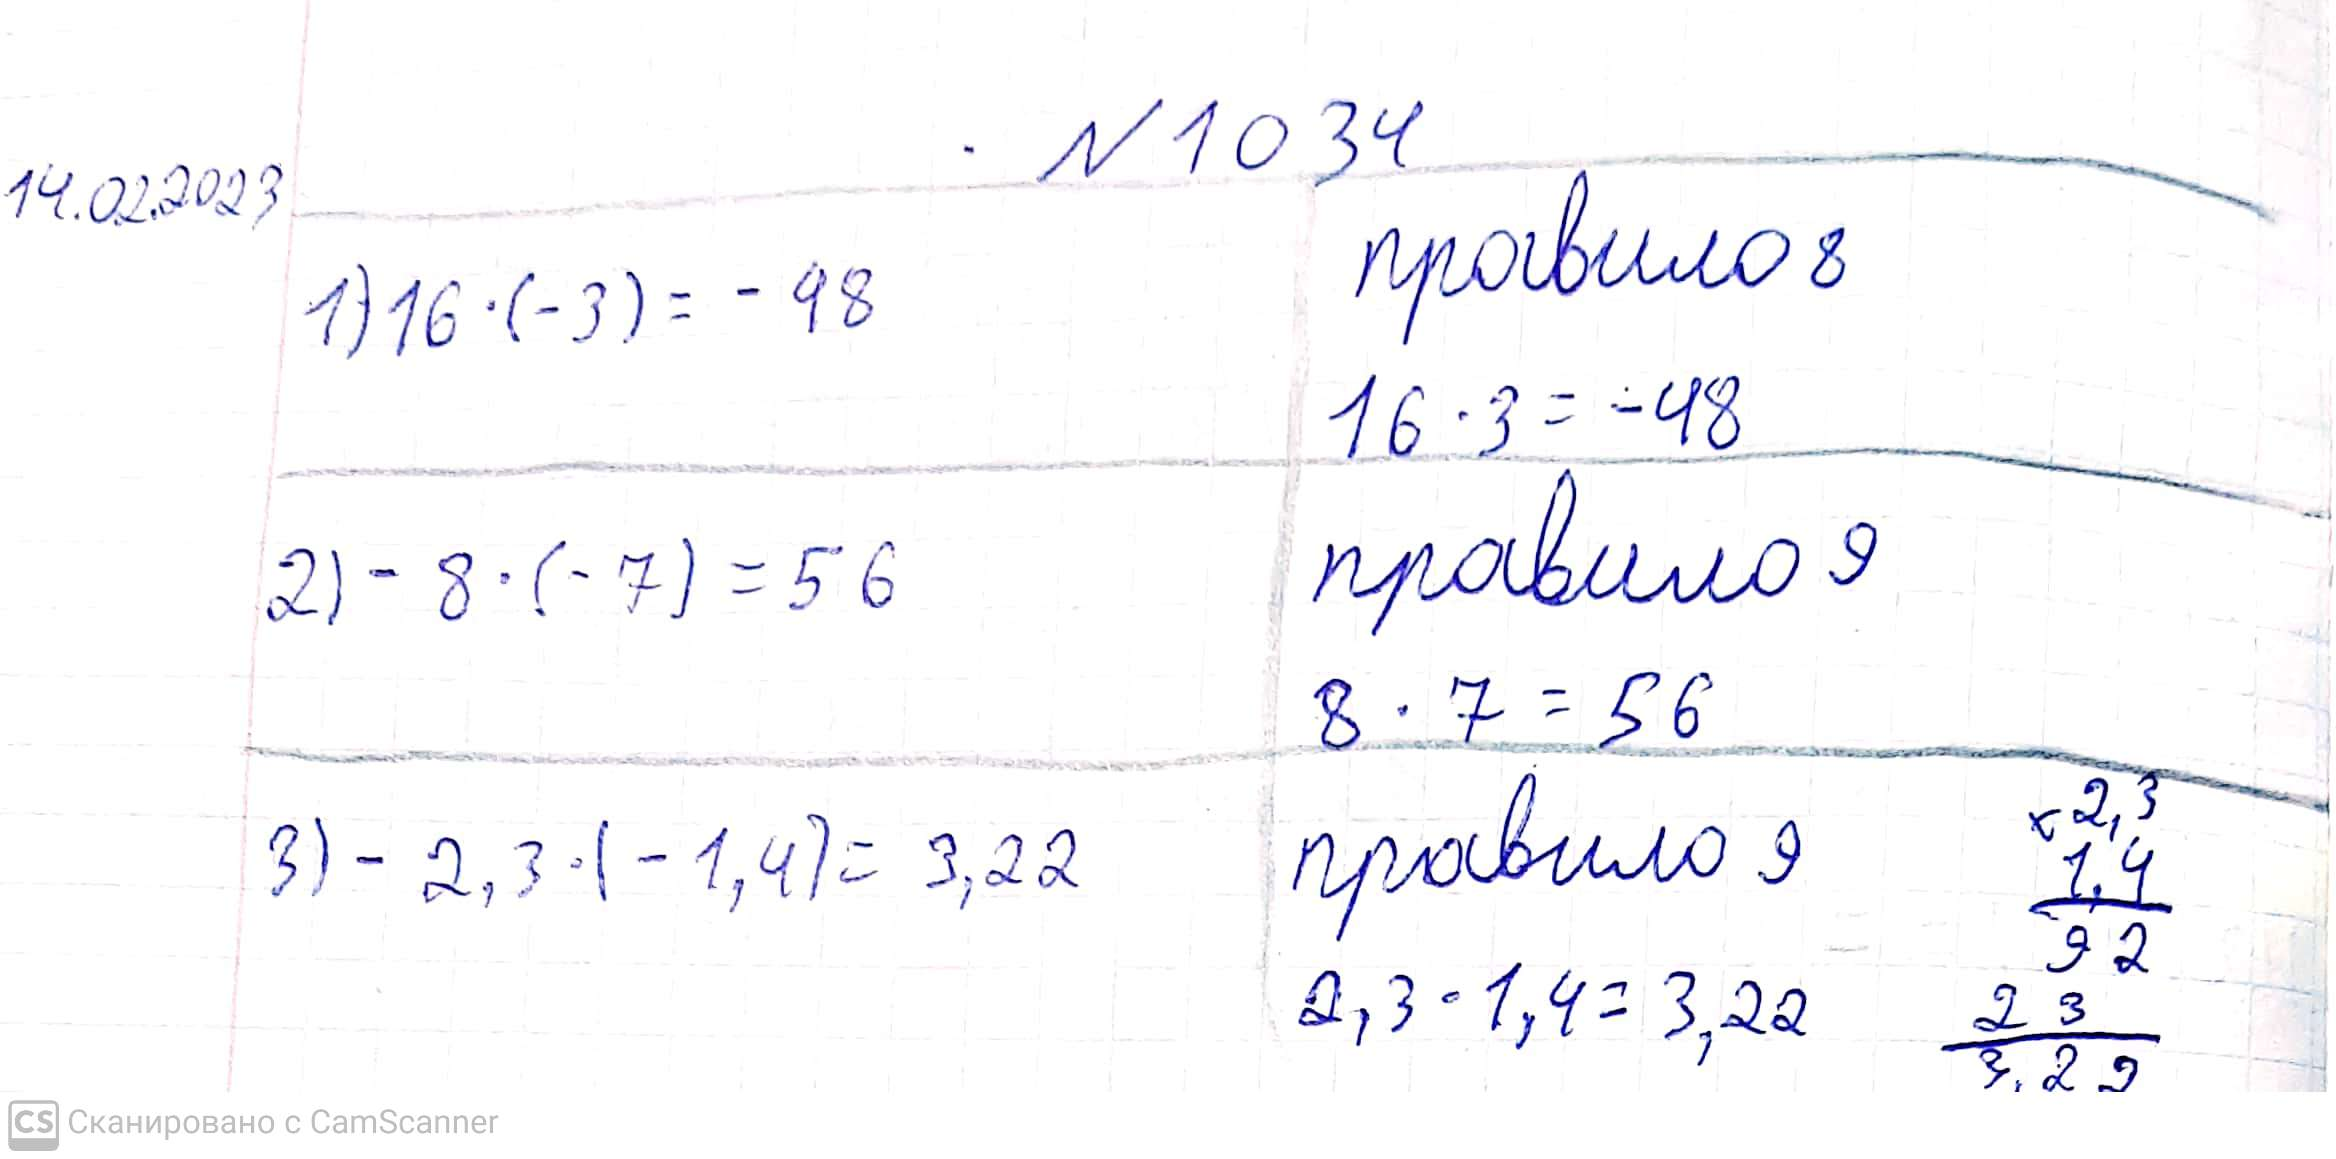 N 1034
14.02.2023
1) 16 · (-3) = - 48
правило 8
16 · 3 = -48
2) - 8 · (- 7) = 56
правило 9
8 · 7 = 56
3) - 2,3 · (- 1,4) = 3,22
правило 9
2,3 · 1,4 = 3,22
× 2,3
1,4
92
23
3,22
CS Сканировано с CamScanner